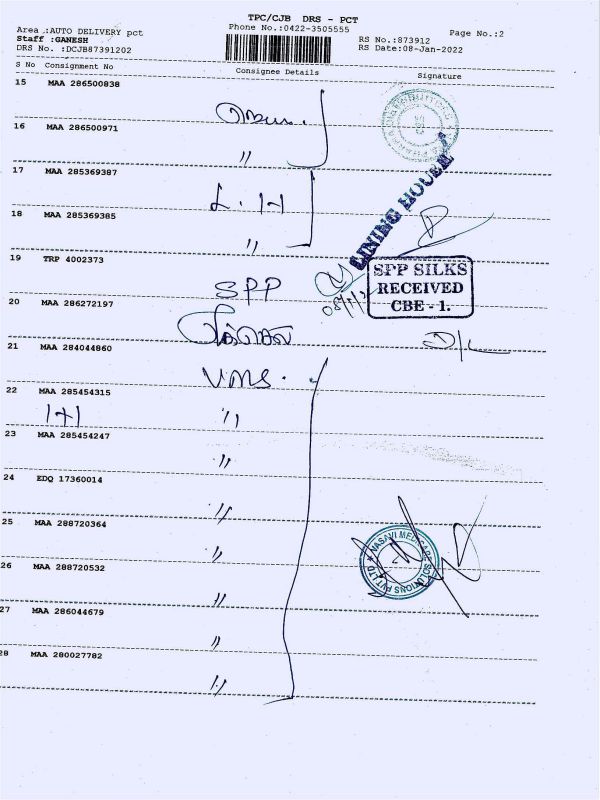 TPC/CJB DRS - PCT
Area :AUTO DELIVERY pct
Phone No.:0422-3505555
Page No.:2
Staff :GANESH
RS No.:873912
DRS No. :DCJB87391202
RS Date:08-Jan-2022
S No Consignment No Consignee Details Signature
15 MAA 286500838
16 MAA 286500971
"
17 MAA 285369387
L. H
18 MAA 285369385
"
LINING HOUSE
19 TRP 4002373
SPP
SPP SILKS
RECEIVED
CBE - 1.
20 MAA 286272197
21 MAA 284044860
VMS.
22 MAA 285454315
1+1 "
23 MAA 285454247
"
24 EDQ 17360014
"
25 MAA 288720364
"
VASAVI MEDICARE SOLUTIONS PVT LTD
26 MAA 288720532
"
27 MAA 286044679
"
28 MAA 280027782
"